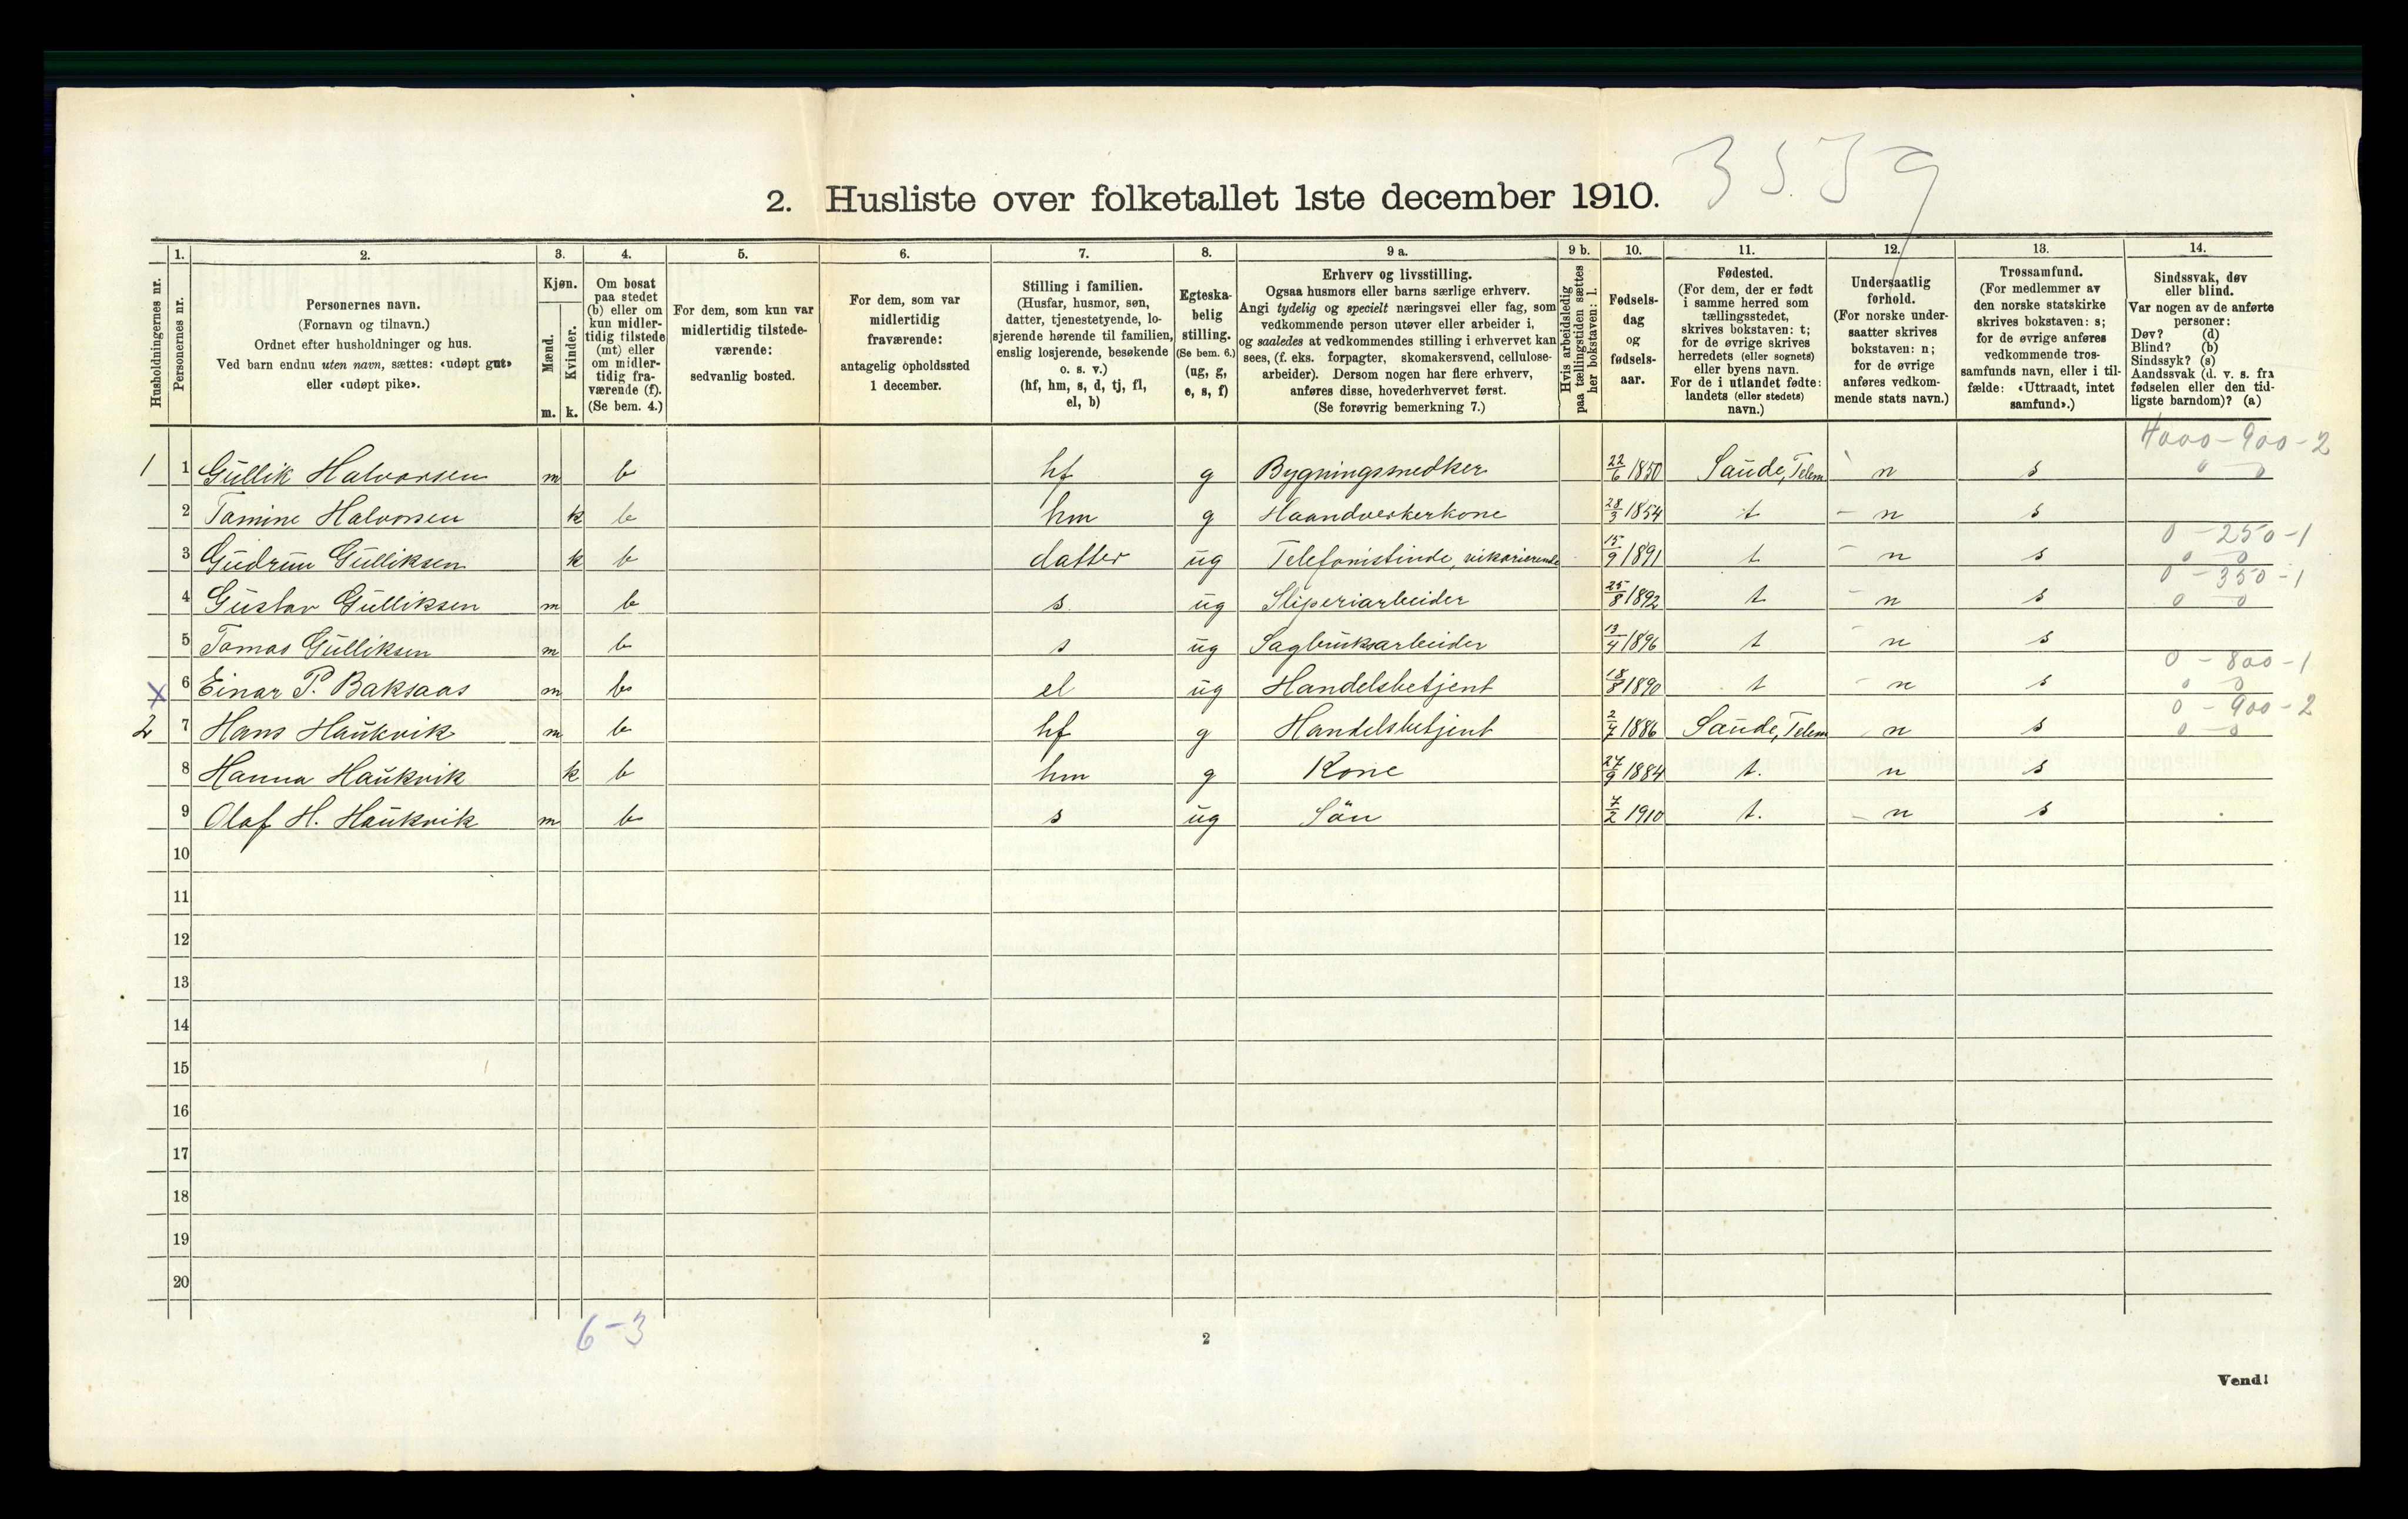 35.39
2. Husliste over folketallet 1ste december 1910.
Husholdningernes nr.
1. Personernes nr.
2. Personernes navn. (Fornavn og tilnavn.) Ordnet efter husholdninger og hus. Ved barn endnu uten navn, sættes: «udøpt gut» eller «udøpt pike».
3. Kjøn. Mænd. m. Kvinder. k.
4. Om bosat paa stedet (b) eller om kun midlertidig tilstede (mt) eller om midlertidig fraværende (f). (Se bem. 4.)
5. For dem, som kun var midlertidig tilstedeværende: sedvanlig bosted.
6. For dem, som var midlertidig fraværende: antagelig opholdssted 1 december.
7. Stilling i familien. (Husfar, husmor, søn, datter, tjenestetyende, losjerende hørende til familien, enslig losjerende, besøkende o. s. v.) (hf, hm, s, d, tj, fl, el, b)
8. Egteskabelig stilling. (Se bem. 6.) (ug, g, e, s, f)
9 a. Erhverv og livsstilling. Ogsaa husmors eller barns særlige erhverv. Angi tydelig og specielt næringsvei eller fag, som vedkommende person utøver eller arbeider i, og saaledes at vedkommendes stilling i erhvervet kan sees, (f. eks. forpagter, skomakersvend, cellulosearbeider). Dersom nogen har flere erhverv, anføres disse, hovederhvervet først. (Se forøvrig bemerkning 7.)
9 b. Hvis arbeidsledig paa tællingstiden sættes her bokstaven: l.
10. Fødselsdag og fødselsaar.
11. Fødested. (For dem, der er født i samme herred som tællingsstedet, skrives bokstaven: t; for de øvrige skrives herredets (eller sognets) eller byens navn. For de i utlandet fødte: landets (eller stedets) navn.)
12. Undersaatlig forhold. (For norske undersaatter skrives bokstaven: n; for de øvrige anføres vedkommende stats navn.)
13. Trossamfund. (For medlemmer av den norske statskirke skrives bokstaven: s; for de øvrige anføres vedkommende trossamfunds navn, eller i tilfælde: «Uttraadt, intet samfund».)
14. Sindssvak, døv eller blind. Var nogen av de anførte personer: Døv? (d) Blind? (b) Sindssyk? (s) Aandssvak (d. v. s. fra fødselen eller den tidligste barndom)? (a)
1 1 Gullik Halvorsen m b hf g Bygningssnedker 22/6 1850 Saude, Telem n s 4000-900-2 0 0
2 Tamine Halvorsen k b hm g Haandverkerkone 28/3 1854 t n s
3 Gudrun Gulliksen k b datter ug Telefonistinde, vikarierende 15/9 1891 t n s 0-250-1 0 0
4 Gustav Gulliksen m b s ug Sliperiarbeider 25/8 1892 t n s 0-350-1 0 0
5 Tomas Gulliksen m b s ug Sagbruksarbeider 13/4 1896 t n s
x 6 Einar P. Baksaas m b el ug Handelsbetjent 18/8 1890 t n s 0-800-1 0 0
2 7 Hans Haukvik m b hf g Handelsbetjent 2/7 1886 Saude, Telem n s 0-900-2 0 0
8 Hanna Haukvik k b hm g Kone 27/9 1884 t. n s
9 Olaf H. Haukvik m b s ug Sön 7/2 1910 t. n s
10
11
12
13
14
15
16
17
18
19
20
6-3
2
Vend!